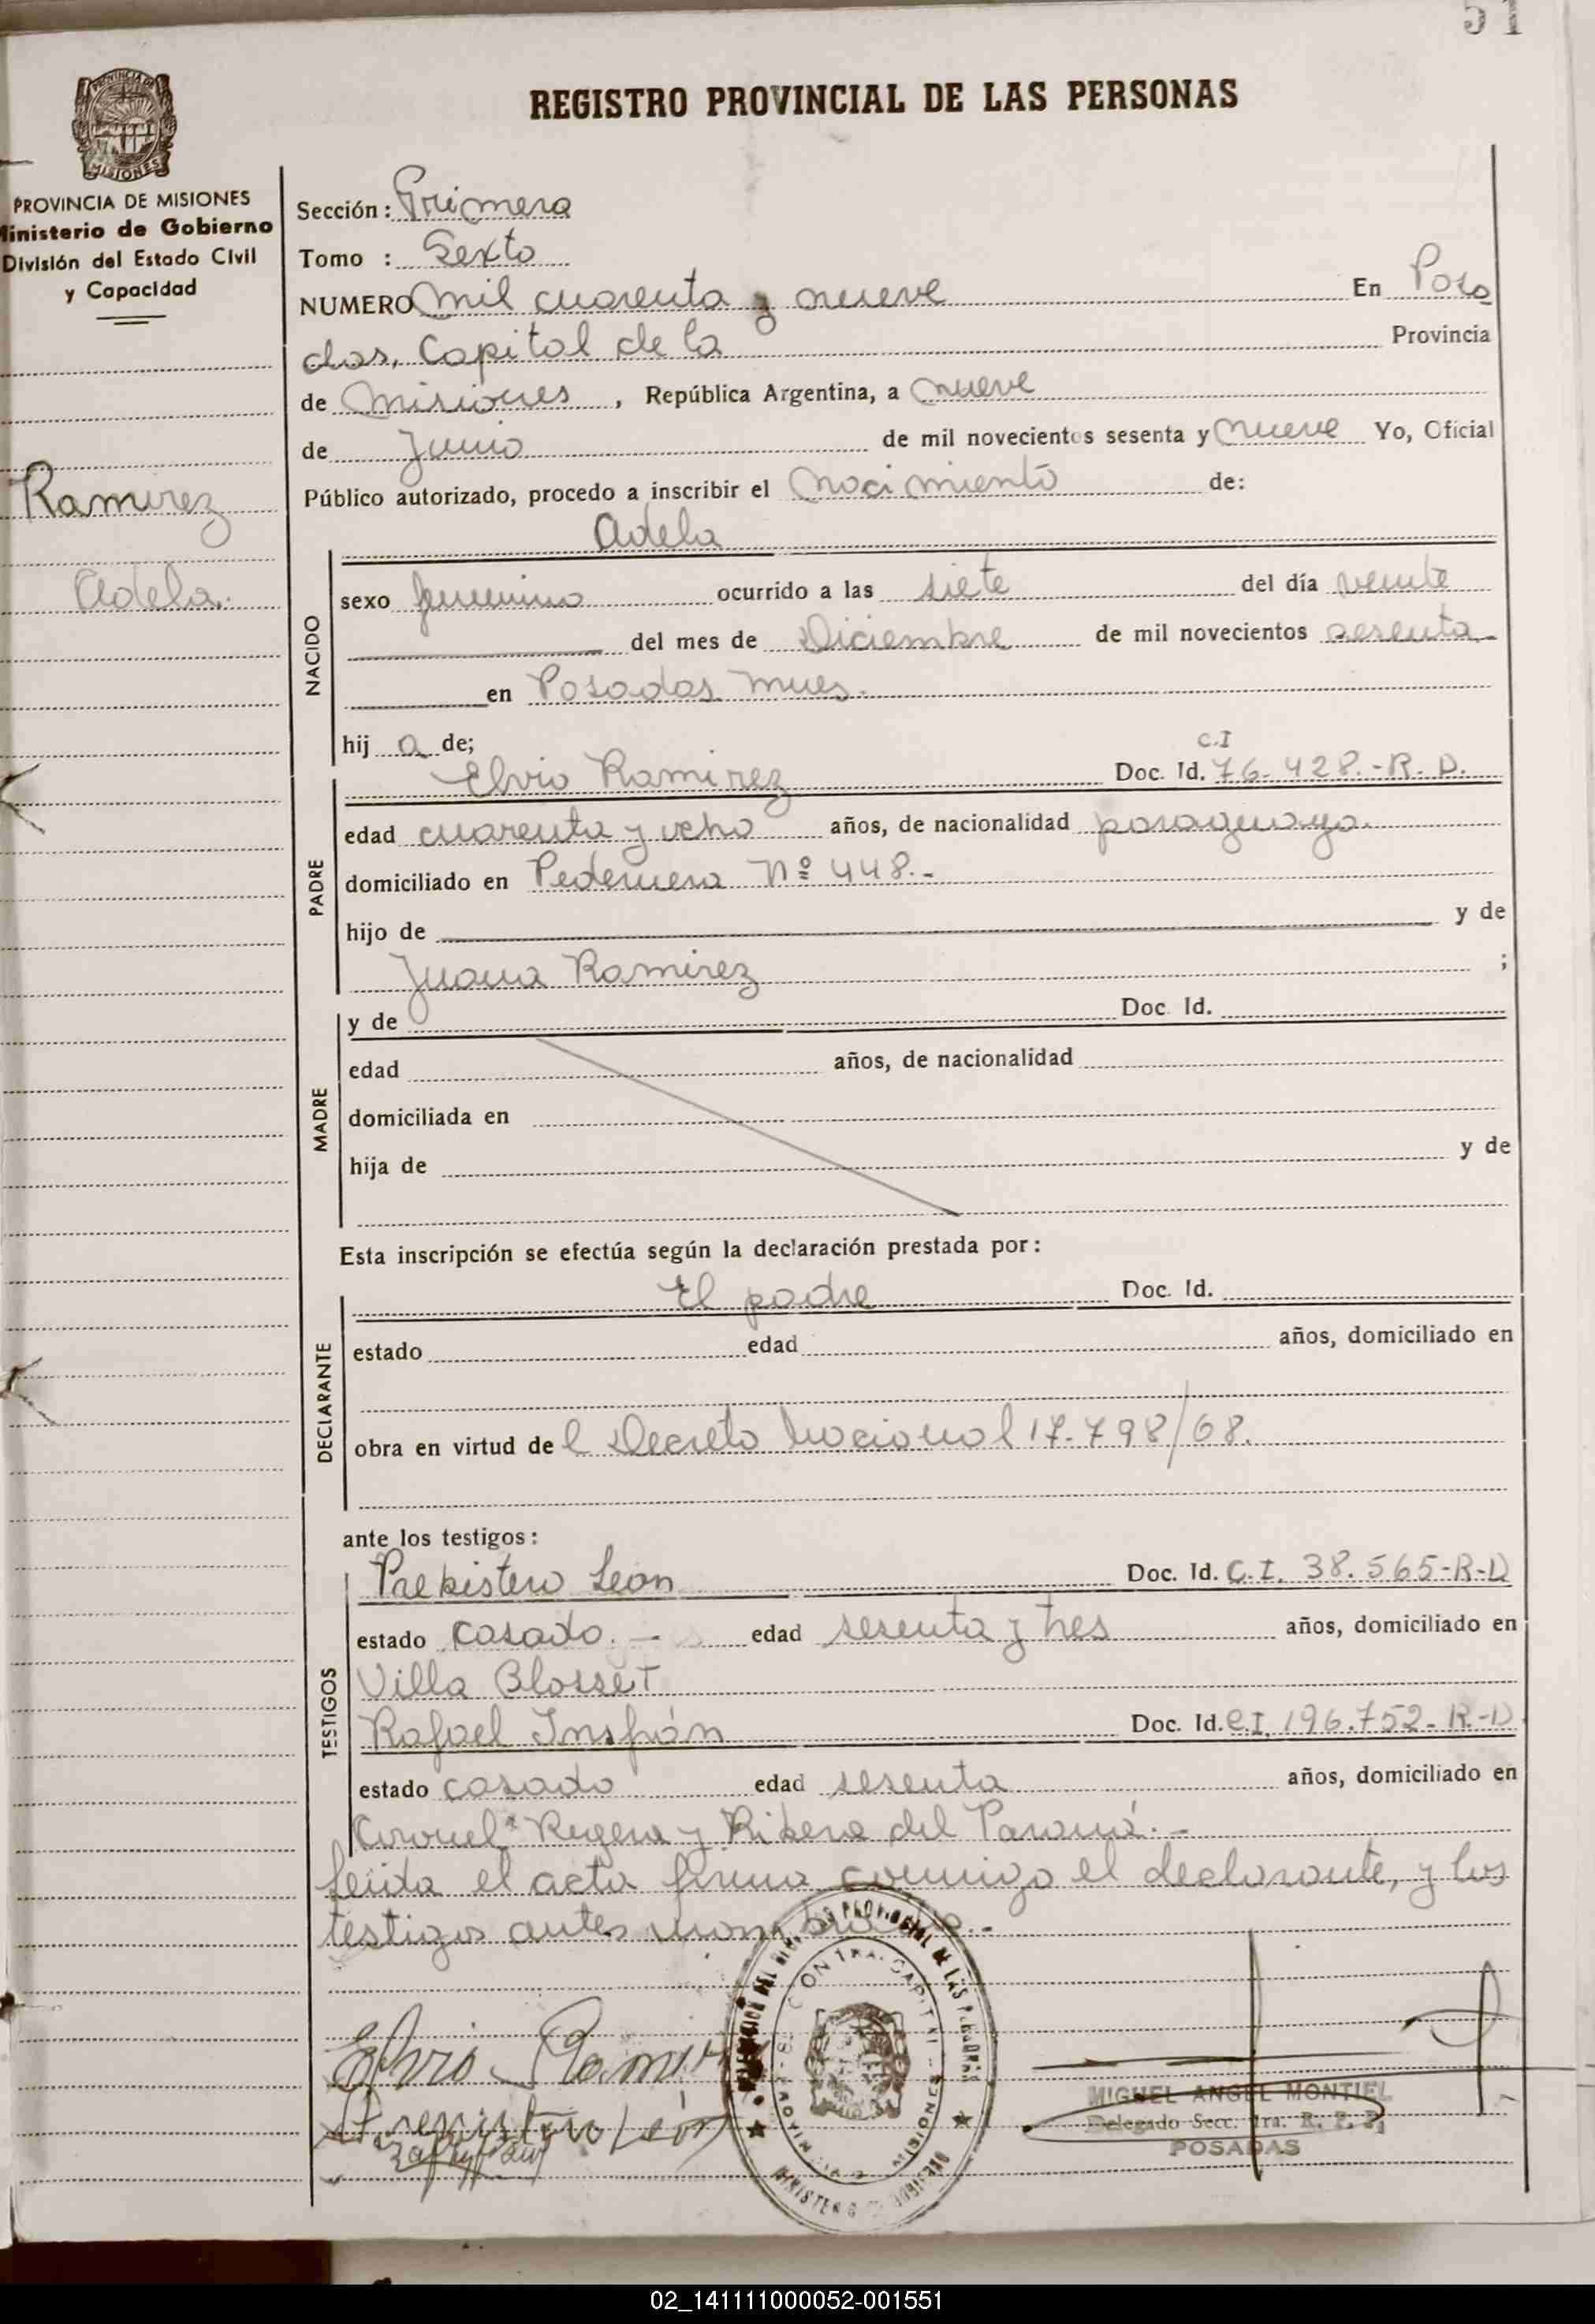 51
REGISTRO PROVINCIAL DE LAS PERSONAS
PROVINCIA DE MISIONES
Ministerio de Gobierno
División del Estado Civil
y Capacidad
Ramirez
Adela.
Sección: Primera
Tomo : Sexto
NUMERO mil cuarenta y nueve En Posa
das, Capital de la Provincia
de Misiones , República Argentina, a nueve
de Junio de mil novecientos sesenta y nueve Yo, Oficial
Público autorizado, procedo a inscribir el nacimiento de:
Adela
NACIDO
sexo femenino ocurrido a las siete del día veinte
del mes de Diciembre de mil novecientos sesenta
en Posadas Mnes.
hij a de;
PADRE
Elvio Ramirez Doc. Id. C.I 76.428.-R.D.
edad cuarenta y ocho años, de nacionalidad paraguaya.
domiciliado en Pedernera Nº 448.-
hijo de y de
Juana Ramirez ;
MADRE
y de Doc. Id.
edad años, de nacionalidad
domiciliada en
hija de y de
Esta inscripción se efectúa según la declaración prestada por:
DECLARANTE
El padre Doc. Id.
estado edad años, domiciliado en
obra en virtud de l Decreto Nacional 17.798/68.
ante los testigos:
TESTIGOS
Prebistero León Doc. Id. C.I. 38.565-R-D
estado casado.- edad sesenta y tres años, domiciliado en
Villa Blosset
Rafael Insfrán Doc. Id. C.I. 196.752-R-D.
estado casado edad sesenta años, domiciliado en
Coronel Regera y Ribera del Paraná.-
leida el acta firma conmigo el declarante, y los
testigos antes
Elvio Ramirez
Prebistero León
MIGUEL ANGEL MONTIEL
Delegado Secc. 1ra. R. P. P.
POSADAS
02_141111000052-001551